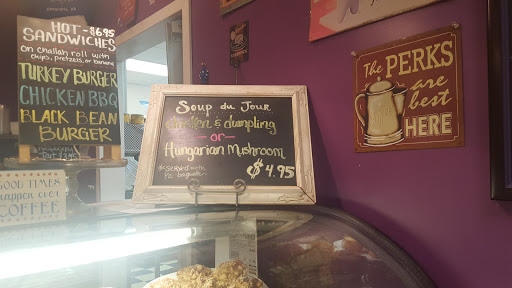 HOT - $6.95
SANDWICHES
on challah roll with
chips, pretzels, or banana
TURKEY BURGER
CHICKEN BBQ
BLACK BEAN
BURGER
GOOD TIMES
happen over
COFFEE
Soup du Jour
chicken & dumpling
-or-
Hungarian Mushroom
served with
baguette
$4.95
The PERKS
are
best
HERE